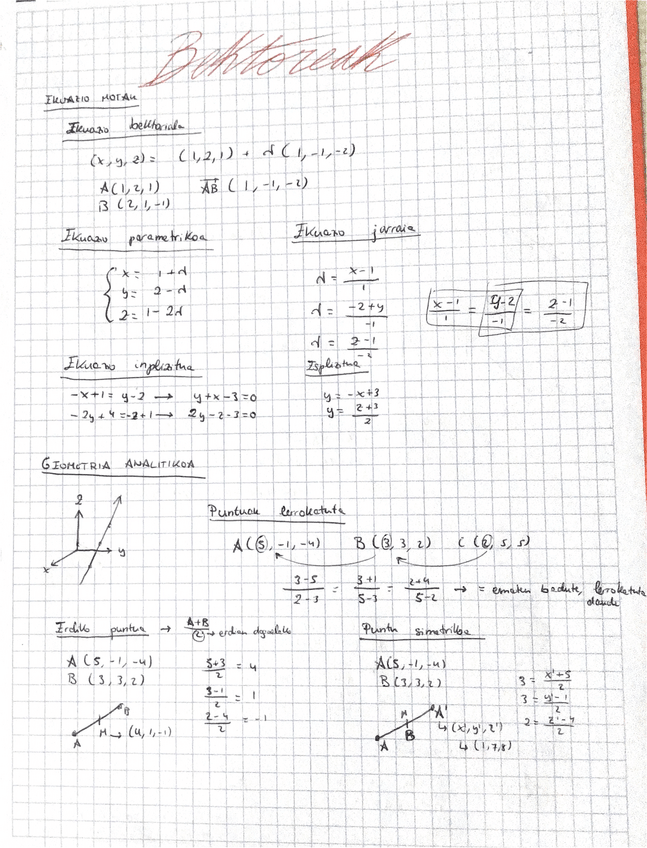 Bektoreak
IKUAZIO MOTAK
Ikuazio bektoriala
(x, y, z) = (1, 2, 1) + d (1, -1, -2)
A (1, 2, 1) AB (1, -1, -2)
B (2, 1, -1)
Ikuazio parametrikoa
x = 1 + d
y = 2 - d
z = 1 - 2d
Ikuazio jarraia
d = x-1 / 1
d = -2+y / -1
d = z-1 / -2
x-1 / 1 = y-2 / -1 = z-1 / -2
Ikuazio inplizitua
-x+1 = y-2 → y+x-3=0
-2y+4=-z+1 → 2y-z-3=0
Esplizitua
y = -x+3
y = z+3 / 2
GEOMETRIA ANALITIKOA
z
y
x
Puntuak lerrokatuta
A (5, -1, -4) B (3, 3, 2) C (2, 5, 5)
3-5 / 2-3 = 3+1 / 5-3 = 2+4 / 5-2 → = ematen badute, lerrokatuta
daude
Erdiko puntua → A+B / 2 → erdian dagoelako
A (5, -1, -4)
B (3, 3, 2)
5+3 / 2 = 4
3-1 / 2 = 1
2-4 / 2 = -1
B
M → (4, 1, -1)
A
Puntu simetrikoa
A (5, -1, -4)
B (3, 3, 2)
3 = x'+5 / 2
3 = y'-1 / 2
2 = z'-4 / 2
M A'
B ↳ (x', y', z')
A ↳ (1, 7, 8)